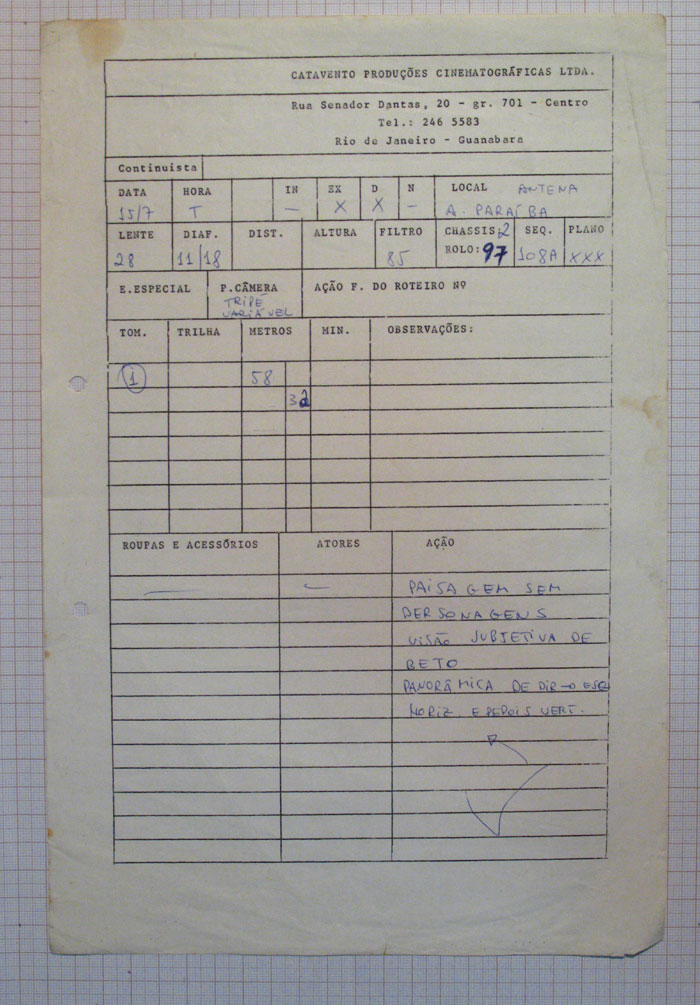 CATAVENTO PRODUÇÕES CINEMATOGRÁFICAS LTDA.
Rua Senador Dantas, 20 - gr. 701 - Centro
Tel.: 246 5583
Rio de Janeiro - Guanabara
Continuista
DATA HORA IN EX D N LOCAL ANTENA
15/7 T — X X — A. PARAÍBA
LENTE DIAF. DIST. ALTURA FILTRO CHASSIS: 2 SEQ. PLANO
28 11/18 85 ROLO: 97 108A XXX
E.ESPECIAL P.CÂMERA AÇÃO F. DO ROTEIRO Nº
TRIPÉ
VARIÁVEL
TOM. TRILHA METROS MIN. OBSERVAÇÕES:
1 58
32
ROUPAS E ACESSÓRIOS ATORES AÇÃO
— — PAISAGEM SEM
PERSONAGENS
VISÃO SUBJETIVA DE
BETO
PANORÂMICA DE DIR → ESQ
HORIZ. E DEPOIS VERT.